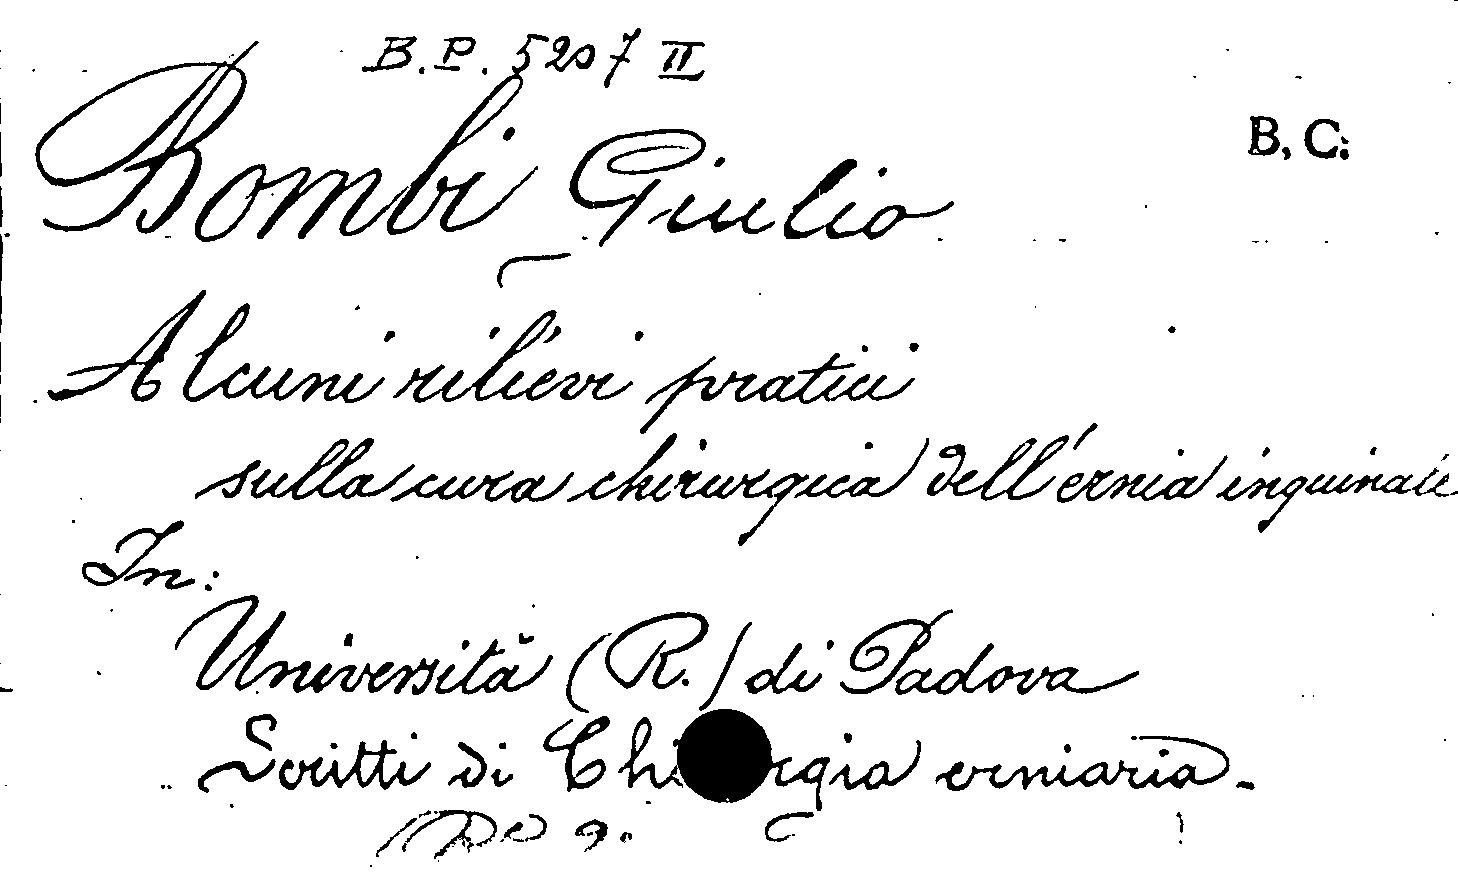 B.P. 5207 II
B. C.
Bombi Giulio
Alcuni rilievi pratici
sulla cura chirurgica dell'ernia inguinale
In:
Università (R.) di Padova
Scritti di Chirurgia erniaria.